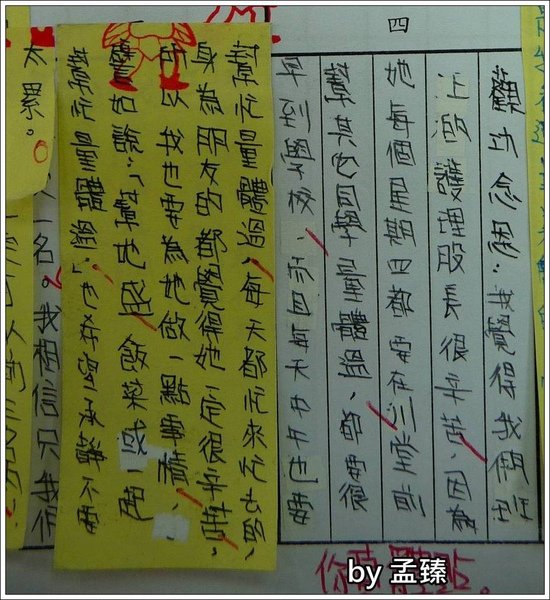 四
觀功念恩:我覺得我們班
上的護理股長很辛苦,因為
她每個星期四都要在川堂前
幫其他同學量體溫,都要很
早到學校,而且每天中午也要
幫忙量體溫,每天都忙來忙去的,
身為朋友的都覺得她一定很辛苦,
所以我也要為她做一點事情,
譬如說:「幫她盛飯菜或一起
幫忙量體溫。」也希望承靜不要
太累。
一名。我相信只我們
你真體貼。
by 孟臻